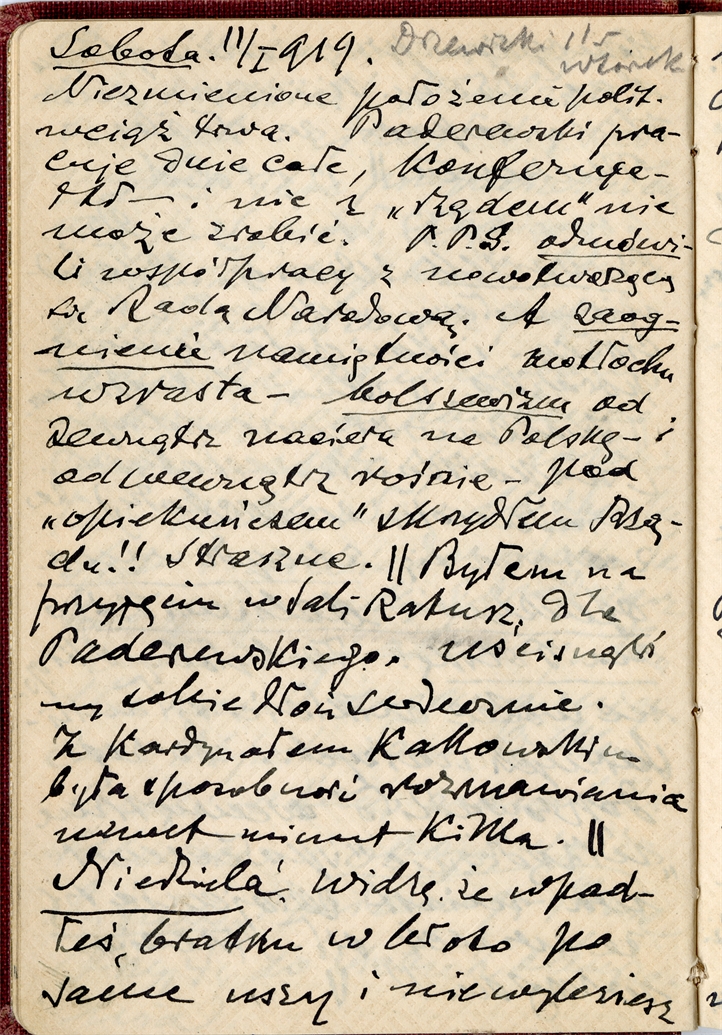 Sobota. 11/I 919. Drzewiecki 115
wtorek
Niezmienione położenie polit.
wciąż trwa. Paderewski pra-
cuje dnie całe, Konferuje-
i nic z „rządem" nie
może zrobić. P.P.S. odmówi-
li współpracy z nowotworzącą
się Radą Narodową. A zaog-
nienie namiętności motłochu
wzrasta – bolszewizm od
zewnątrz naciera na Polskę – i
od wewnątrz rośnie – pod
„opiekuńczem" skrzydłem Rzą-
du!! Straszne. || Byłem na
przyjęciu w sali Ratusz. dla
Paderewskiego. uścisnęli
my sobie dłoń serdecznie.
Z Kardynałem Kakowskim
była sposobność rozmawiania
nawet minut Kilka. ||
Niedziela. widzę, że wpad-
łeś, bratku w błoto po
same uszy i nie wyleziesz